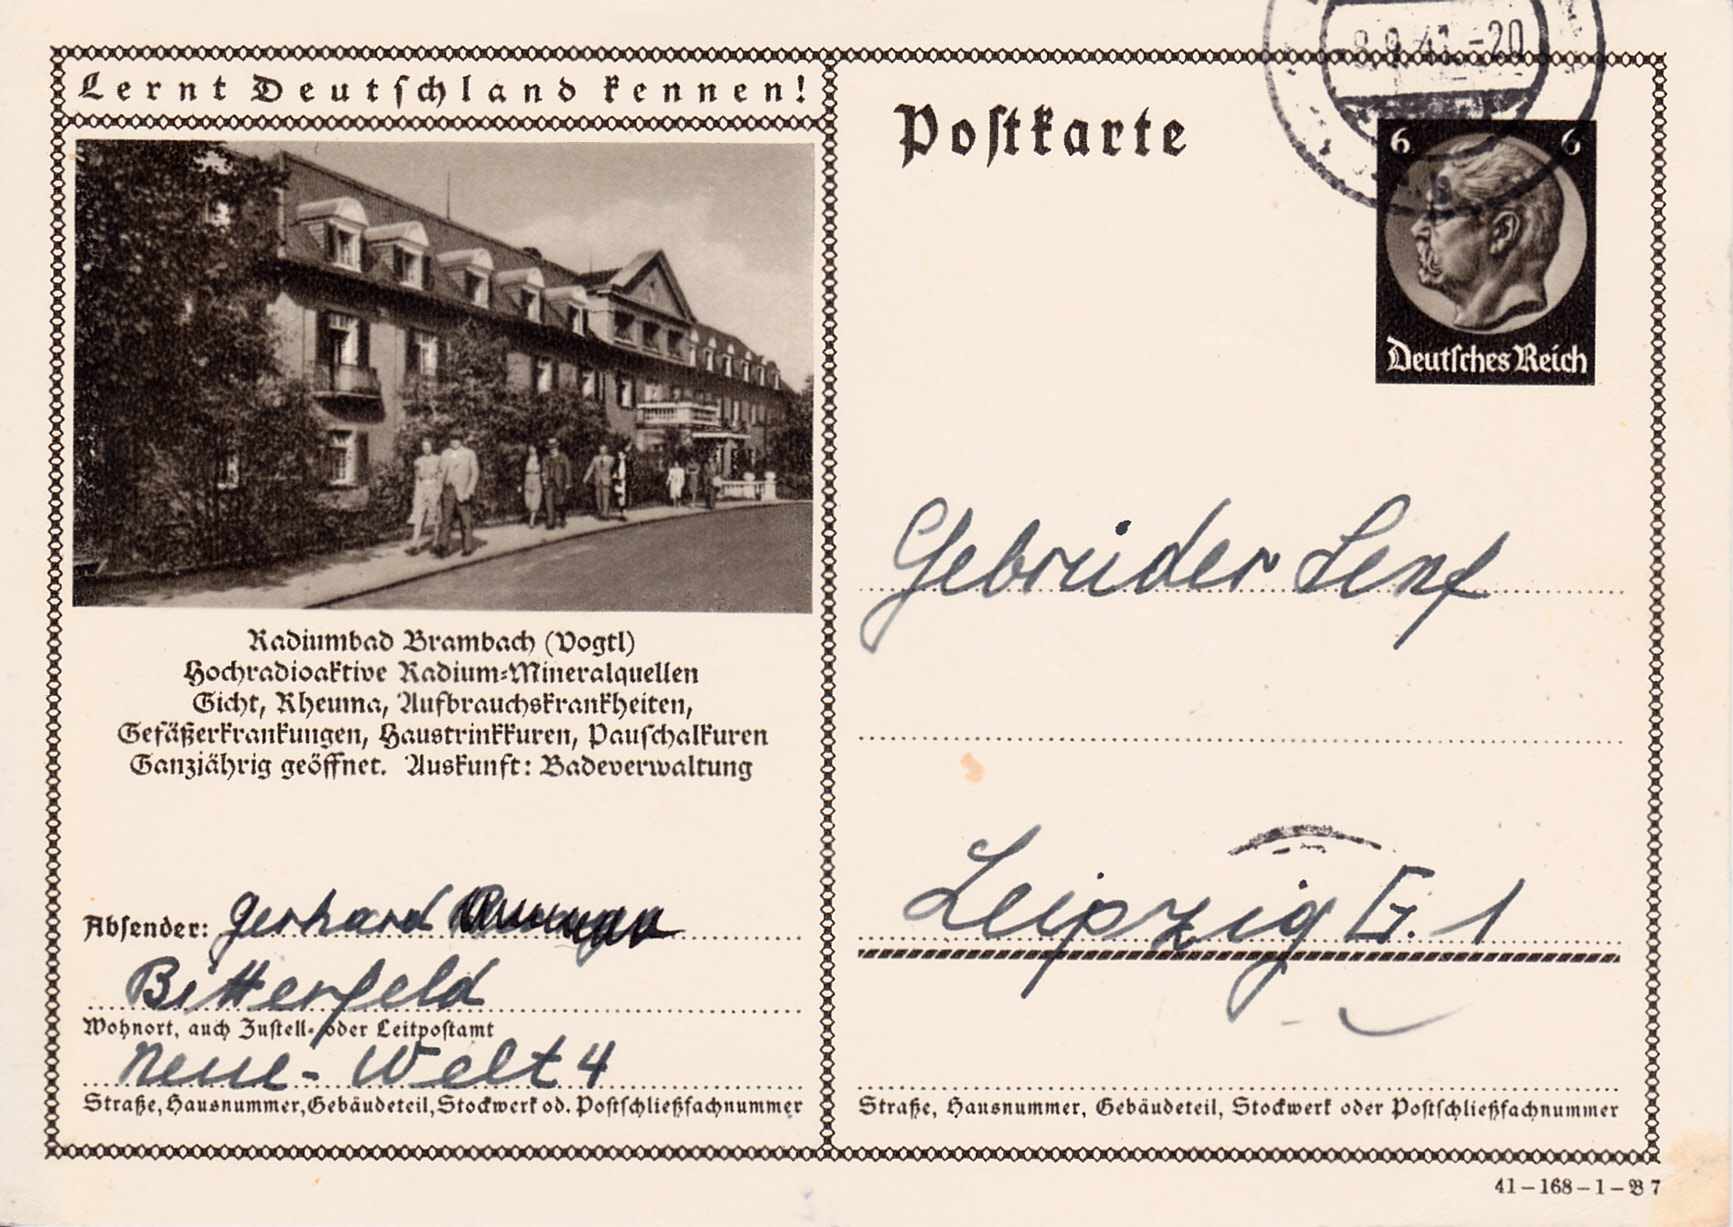 Lernt Deutschland kennen!
Radiumbad Brambach (Vogtl)
Hochradioaktive Radium=Mineralquellen
Gicht, Rheuma, Aufbrauchskrankheiten,
Gefäßerkrankungen, Haustrinkkuren, Pauschalkuren
Ganzjährig geöffnet. Auskunft: Badeverwaltung
Absender: Gerhard
Bitterfeld
Wohnort, auch Zustell- oder Leitpostamt
Neue-Welt 4
Straße, Hausnummer, Gebäudeteil, Stockwerk od. Postschließfachnummer
8.9.41.-20
Postkarte
6 6
Deutsches Reich
Gebrüder Senf
Leipzig G. 1
Straße, Hausnummer, Gebäudeteil, Stockwerk oder Postschließfachnummer
41-168-1-B 7